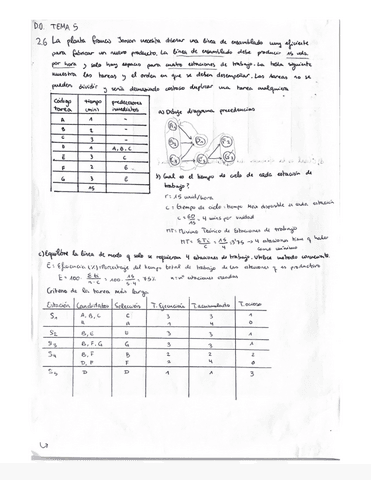 D.O. TEMA 5
2.6 La planta Francis Janson necesita diseñar una línea de ensamblado muy eficiente
para fabricar un nuevo producto. La línea de ensamblado debe producir 15 uds
por hora y solo hay espacio para cuatro estaciones de trabajo. La tabla siguiente
muestra las tareas y el orden en que se deben desempeñar. Las tareas no se
pueden dividir y sería demasiado costoso duplicar una tarea cualquiera.
Código tarea | tiempo (min) | predecesores inmediatos
A 1 -
B 2 -
C 3 -
D 1 A, B, C
E 3 C
F 2 E
G 3 E
15
a) Dibuje diagrama precedencias
b) Cuál es el tiempo de ciclo de cada estación de
trabajo?
r = 15 unid/hora
c = tiempo de ciclo: tiempo disponible en cada estación
c = 60/15 = 4 min por unidad
MT = Mínimo Teórico de Estaciones de trabajo
MT = Σti/c = 15/4 = 3'75 → 4 estaciones
como mínimo
c) Equilibre la línea de modo que solo se requieran 4 estaciones de trabajo. Utilice método
E = Eficiencia (%) Porcentaje del tiempo total de trabajo de las estaciones
E = 100 · Σti/n·c = 100 · 15/5·4 = 75%
n = nº estaciones
Criterio de la tarea más larga
Estación | Candidatos | Selección | T. Ejecución | T. acumulado | T. ocioso
S1 A, B, C C 3 3 1
A 1 4 0
S2 B, E E 3 3 1
S3 B, F, G G 3 3 1
S4 B, F B 2 2 2
D, F F 2 4 0
S5 D D 1 1 3